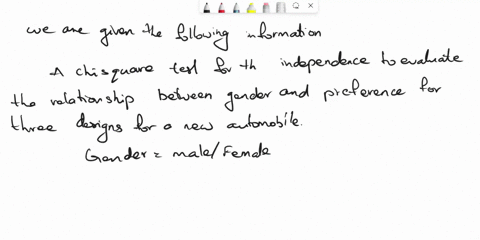 we are given the following information
A chisquare test for th independence to evaluate
the relationship between gender and preference for
three designs for a new automobile.
Gender = male/Female